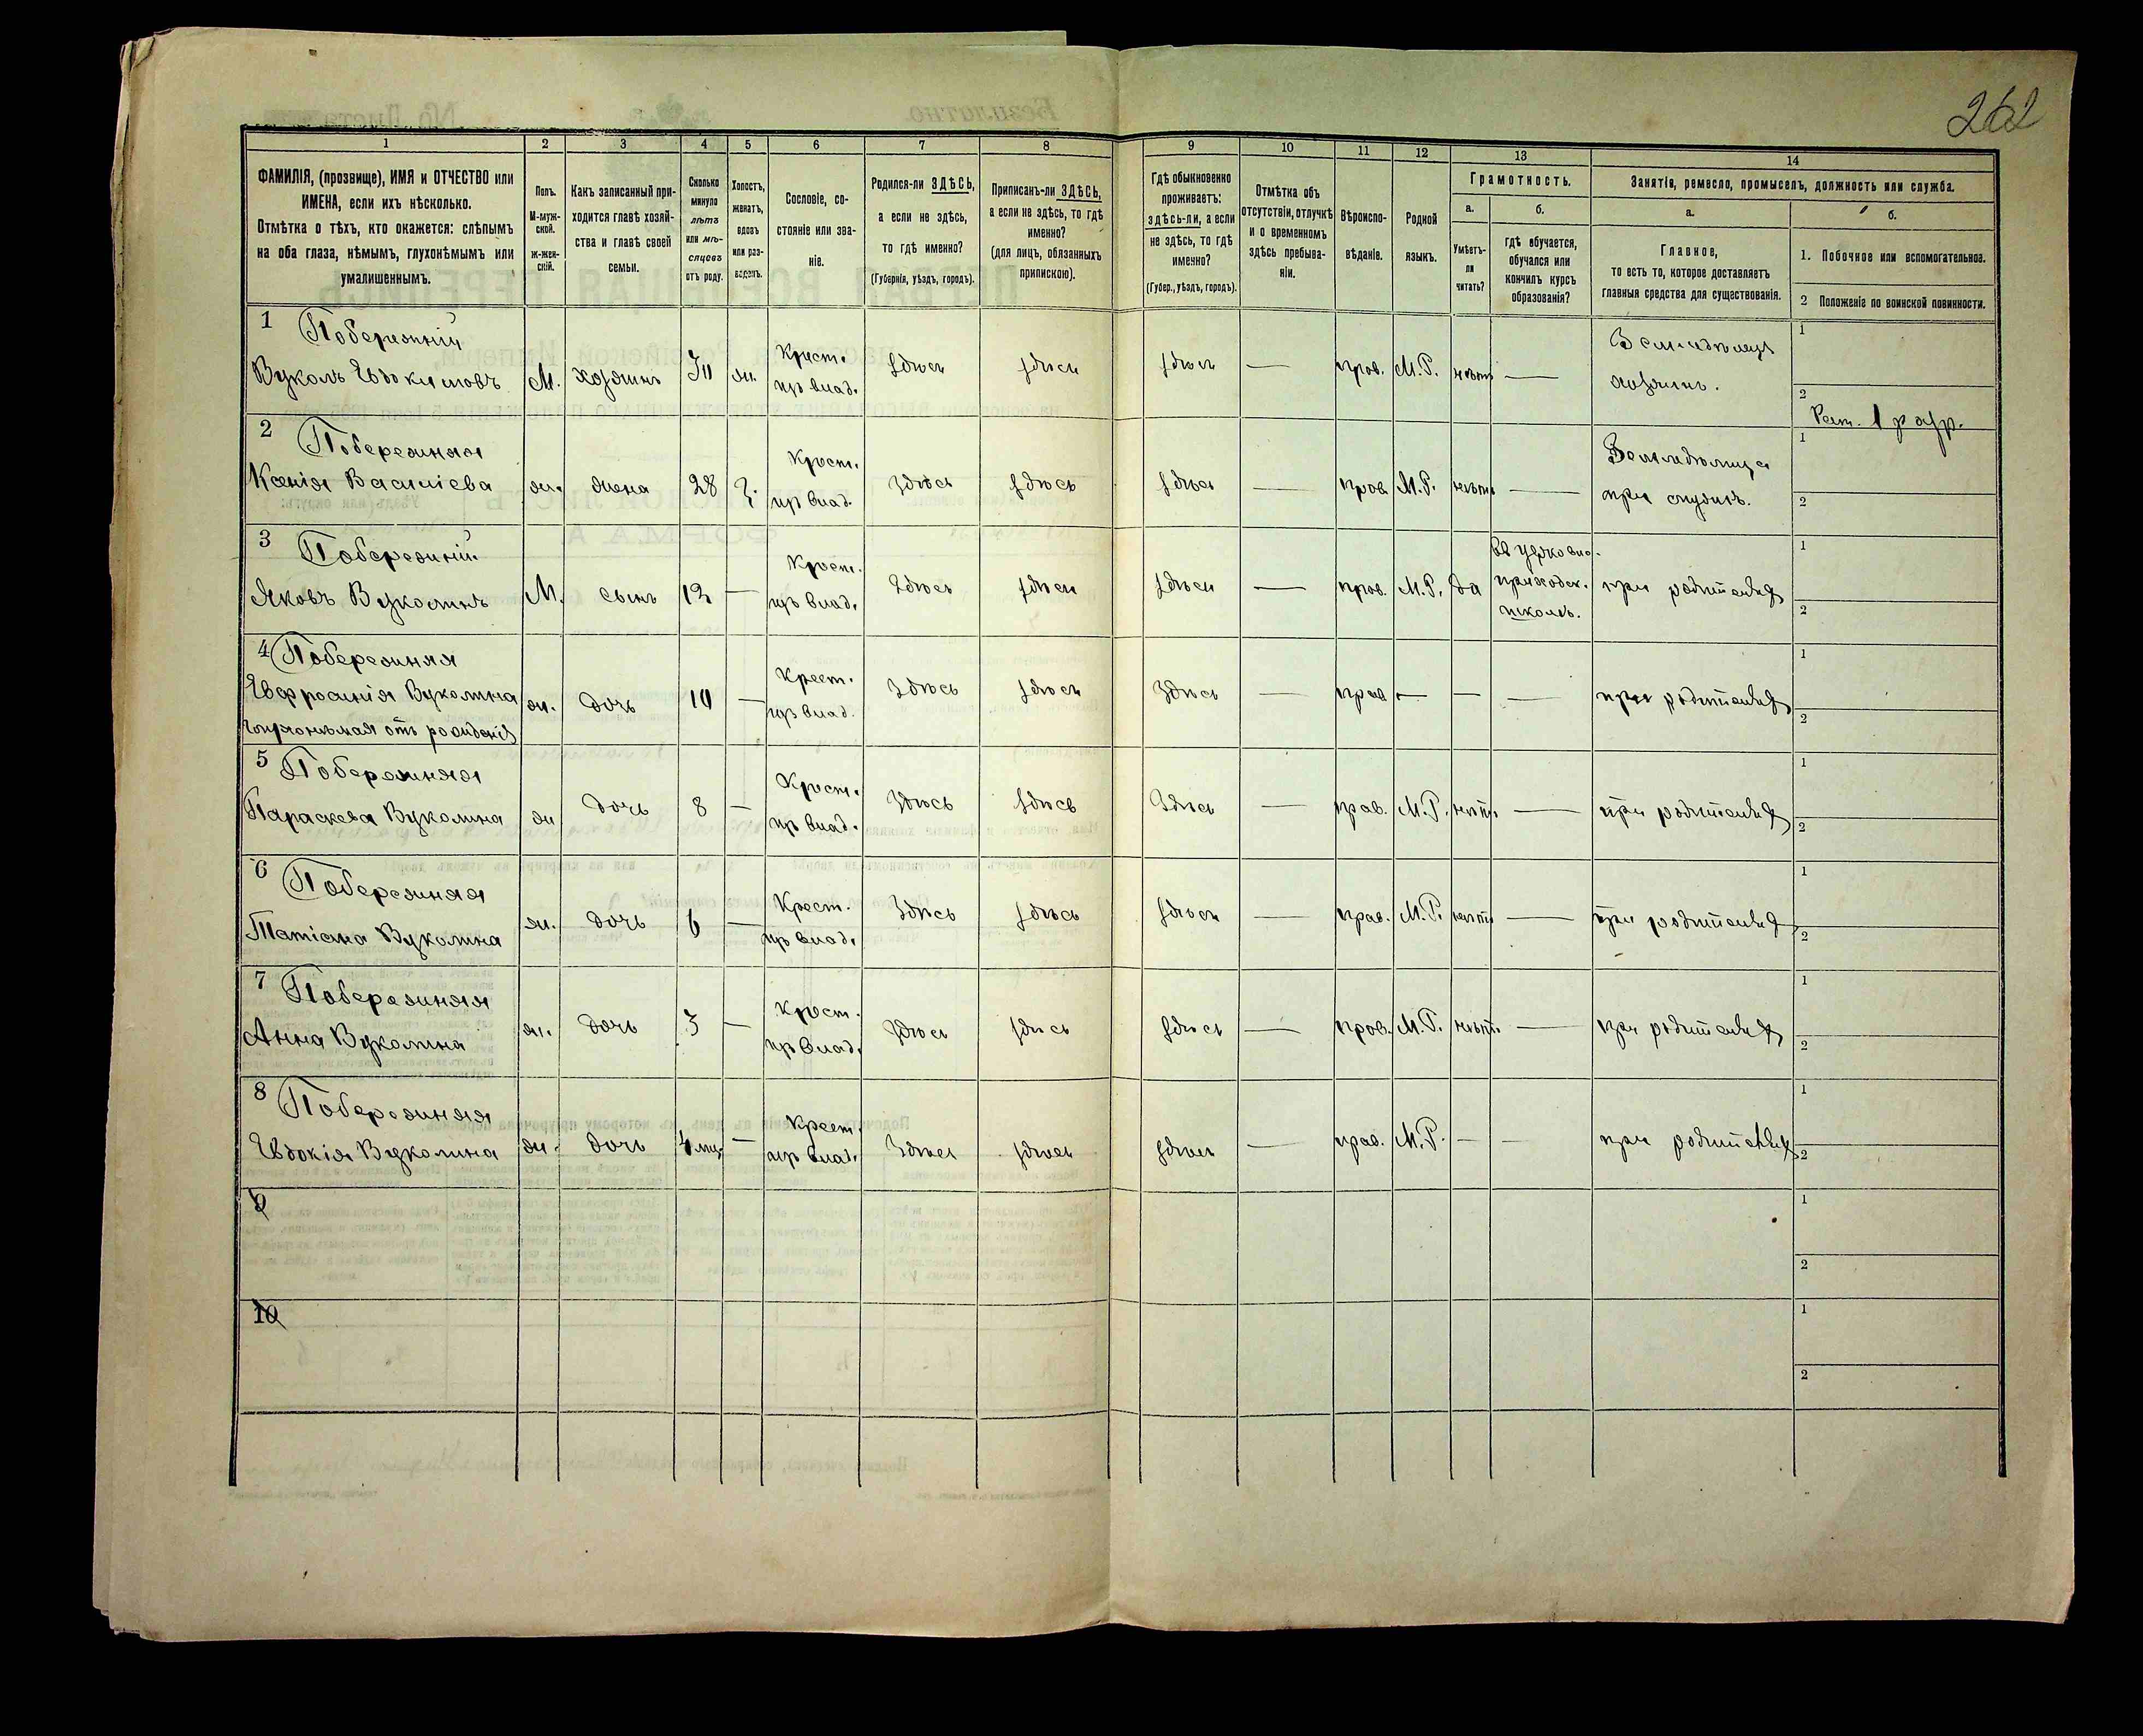 262
1
2
3
4
5
6
7
8
9
10
11
12
13
14
ФАМИЛІЯ, (прозвище), ИМЯ и ОТЧЕСТВО или
ИМЕНА, если ихъ нѣсколько.
Отмѣтка о тѣхъ, кто окажется: слѣпымъ
на оба глаза, нѣмымъ, глухонѣмымъ или
умалишеннымъ.
Полъ.
М-муж-
ской.
Ж-жен-
скій.
Какъ записанный при-
ходится главѣ хозяй-
ства и главѣ своей
семьи.
Сколько
минуло
лѣтъ
или мѣ-
сяцевъ
отъ роду.
Холостъ,
женатъ,
вдовъ
или раз-
веденъ.
Сословіе, со-
стояніе или зва-
ніе.
Родился-ли ЗДѢСЬ,
а если не здѣсь,
то гдѣ именно?
(Губернія, уѣздъ, городъ).
Приписанъ-ли ЗДѢСЬ,
а если не здѣсь, то гдѣ
именно?
(для лицъ, обязанныхъ
припискою).
Гдѣ обыкновенно
проживаетъ:
здѣсь-ли, а если
не здѣсь, то гдѣ
именно?
(Губер., уѣздъ, городъ).
Отмѣтка объ
отсутствіи, отлучкѣ
и о временномъ
здѣсь пребыва-
ніи.
Вѣроиспо-
вѣданіе.
Родной
языкъ.
Грамотность.
а.
Умѣетъ-
ли
читать?
б.
гдѣ обучается,
обучался или
кончилъ курсъ
образованія?
Занятія, ремесло, промыселъ, должность или служба.
а.
Главное,
то есть то, которое доставляетъ
главныя средства для существованія.
б.
1. Побочное или вспомогательное.
2 Положеніе по воинской повинности.
1 Побережній
Вуколъ Евдокимовъ
М.
хозяинъ
ж.
Крест.
здѣсь
здѣсь
здѣсь
—
прав.
М.Р.
нѣтъ
—
Земледѣлецъ
хозяинъ.
1
2
2 Побережняя
Ксенія Василіева
ж.
жена
28
Крест.
Здѣсь
здѣсь
здѣсь
—
прав.
М.Р.
нѣтъ
—
1
2
3 Побережній
Яковъ Вуколинъ
М.
сынъ
12
—
Крест.
Здѣсь
здѣсь
здѣсь
—
прав.
М.Р.
да
въ церковно-
приходск.
школѣ.
при родителяхъ
1
2
4 Побережняя
Евфросинія Вуколина
глухонѣмая отъ рожденія
ж.
дочь
10
—
Крест.
Здѣсь
здѣсь
Здѣсь
—
прав.
—
—
—
при родителяхъ
1
2
5 Побережняя
Параскева Вуколина
ж
дочь
8
—
Крест.
Здѣсь
здѣсь
Здѣсь
—
прав.
М.Р.
нѣтъ
—
при родителяхъ
1
2
6 Побережняя
Татіана Вуколина
ж.
дочь
6
—
Крест.
Здѣсь
здѣсь
здѣсь
—
прав.
М.Р.
нѣтъ
—
при родителяхъ
1
2
7 Побережняя
Анна Вуколина
ж.
дочь
3
—
Крест.
Здѣсь
здѣсь
здѣсь
—
прав.
М.Р.
нѣтъ
—
при родителяхъ
1
2
8 Побережняя
Евдокія Вуколина
ж.
дочь
—
Крест.
Здѣсь
здѣсь
здѣсь
—
прав.
М.Р.
—
—
при родителяхъ
1
2
9
1
2
10
1
2